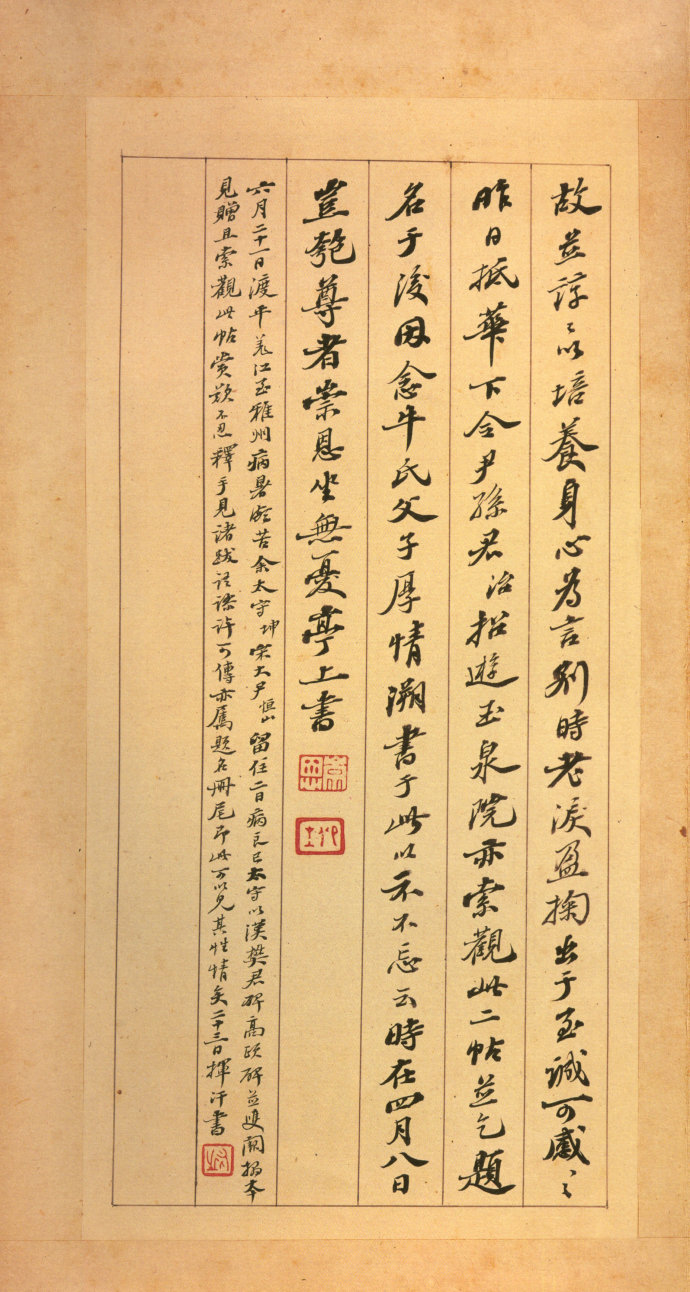 故並諄〻以培養身心為言別時老淚盈掬出于至誠可感〻
昨日抵華下令尹孫君治招遊玉泉院亦索觀此二帖並乞題
名于後因念牛氏父子厚情溯書于此以示不忘云時在四月八日
豈匏尊者崇恩坐無憂亭上書
六月二十一日渡平羌江至雅州病暑頗苦余太守坤宋大尹恒山留住二日病良已太守以漢樊君碑高頤碑並雙闕搨本
見贈且索觀此帖賞歎不忍釋手見諸跋語謬許可傳亦屬題名冊尾即此可以見其性情矣二十三日揮汗書